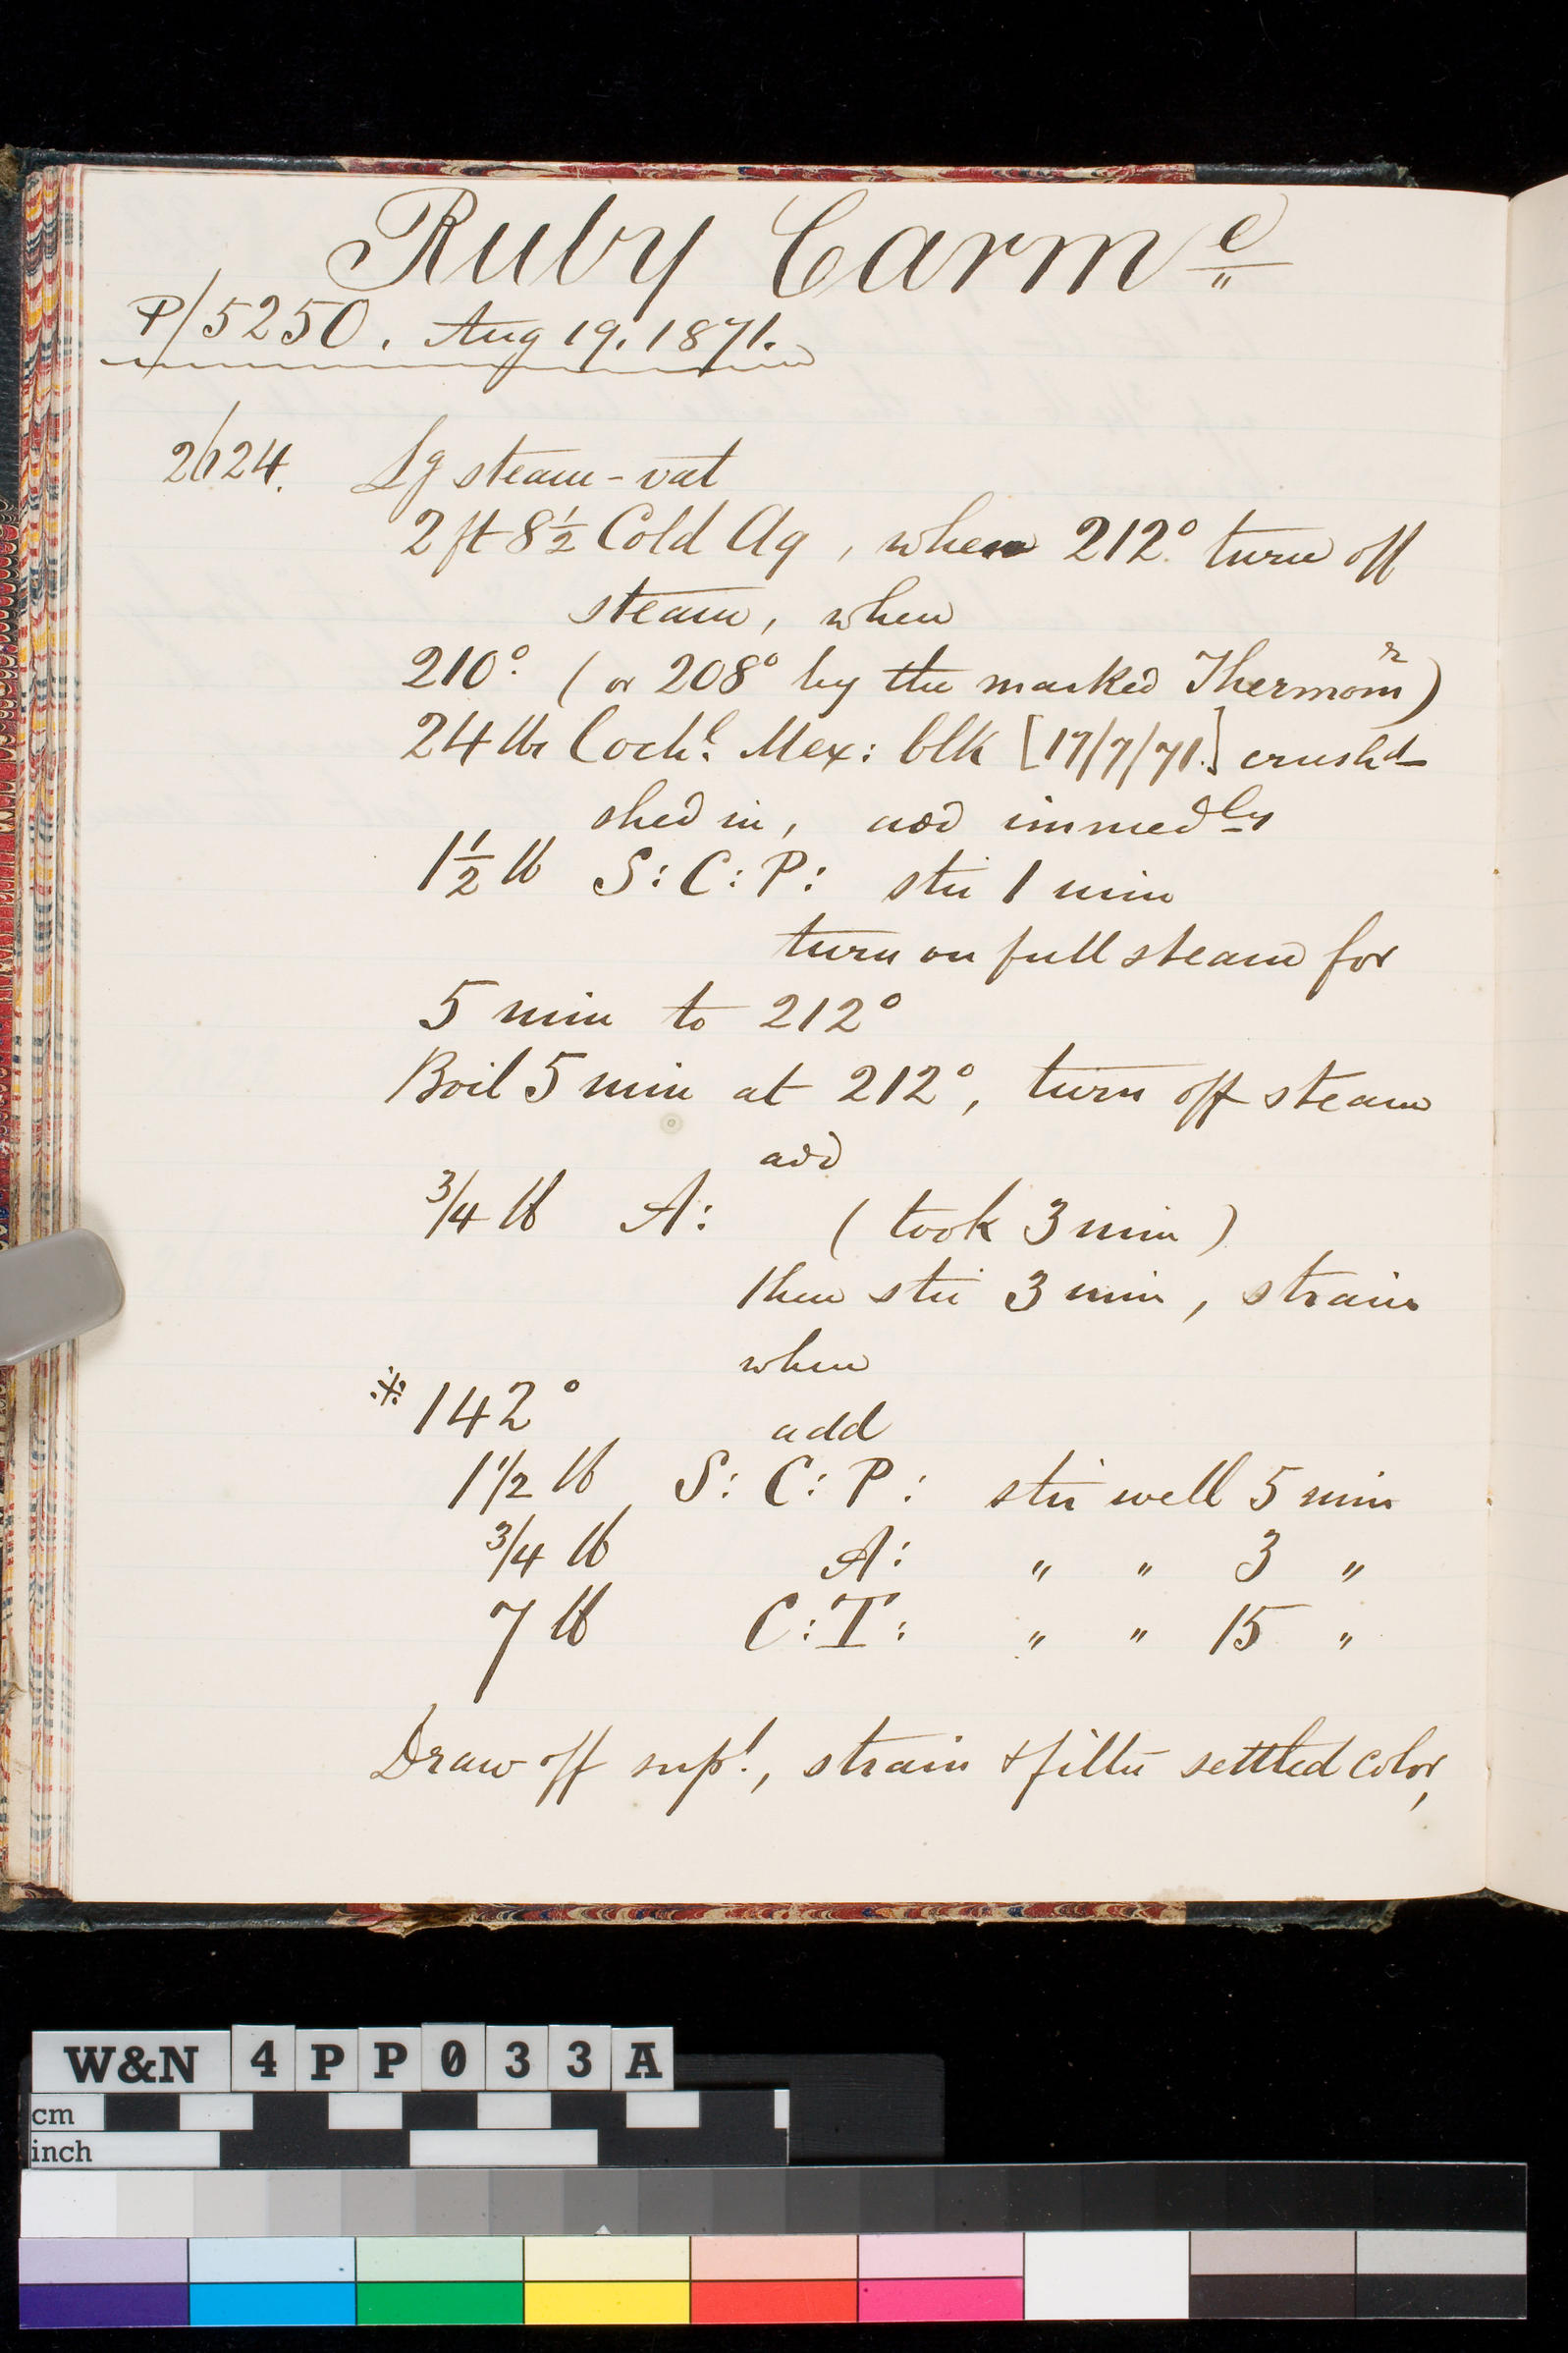 Ruby Carmᵉ
P/5250. Aug 19. 1871.
2/124. Lg steam-vat
2 ft 8½ Cold Aq, when 212° turn off
steam, when
210° (or 208° by the marked Thermomʳ)
24 lbs Cochˡ Mex: blk [17/7/71.] crushᵈ
shed in, add immedˡʸ
1½ lb S: C: P: stir 1 min
turn on full steam for
5 min to 212°
Boil 5 min at 212°, turn off steam
add
¾ lb A: (took 3 min)
then stir 3 min, strain
when
※ 142°
add
1½ lb S: C: P: stir well 5 min
¾ lb A: " " 3 "
7 lb C: T: " " 15 "
Draw off supˡ, strain & filter settled color,
W&N 4PP033A
cm
inch